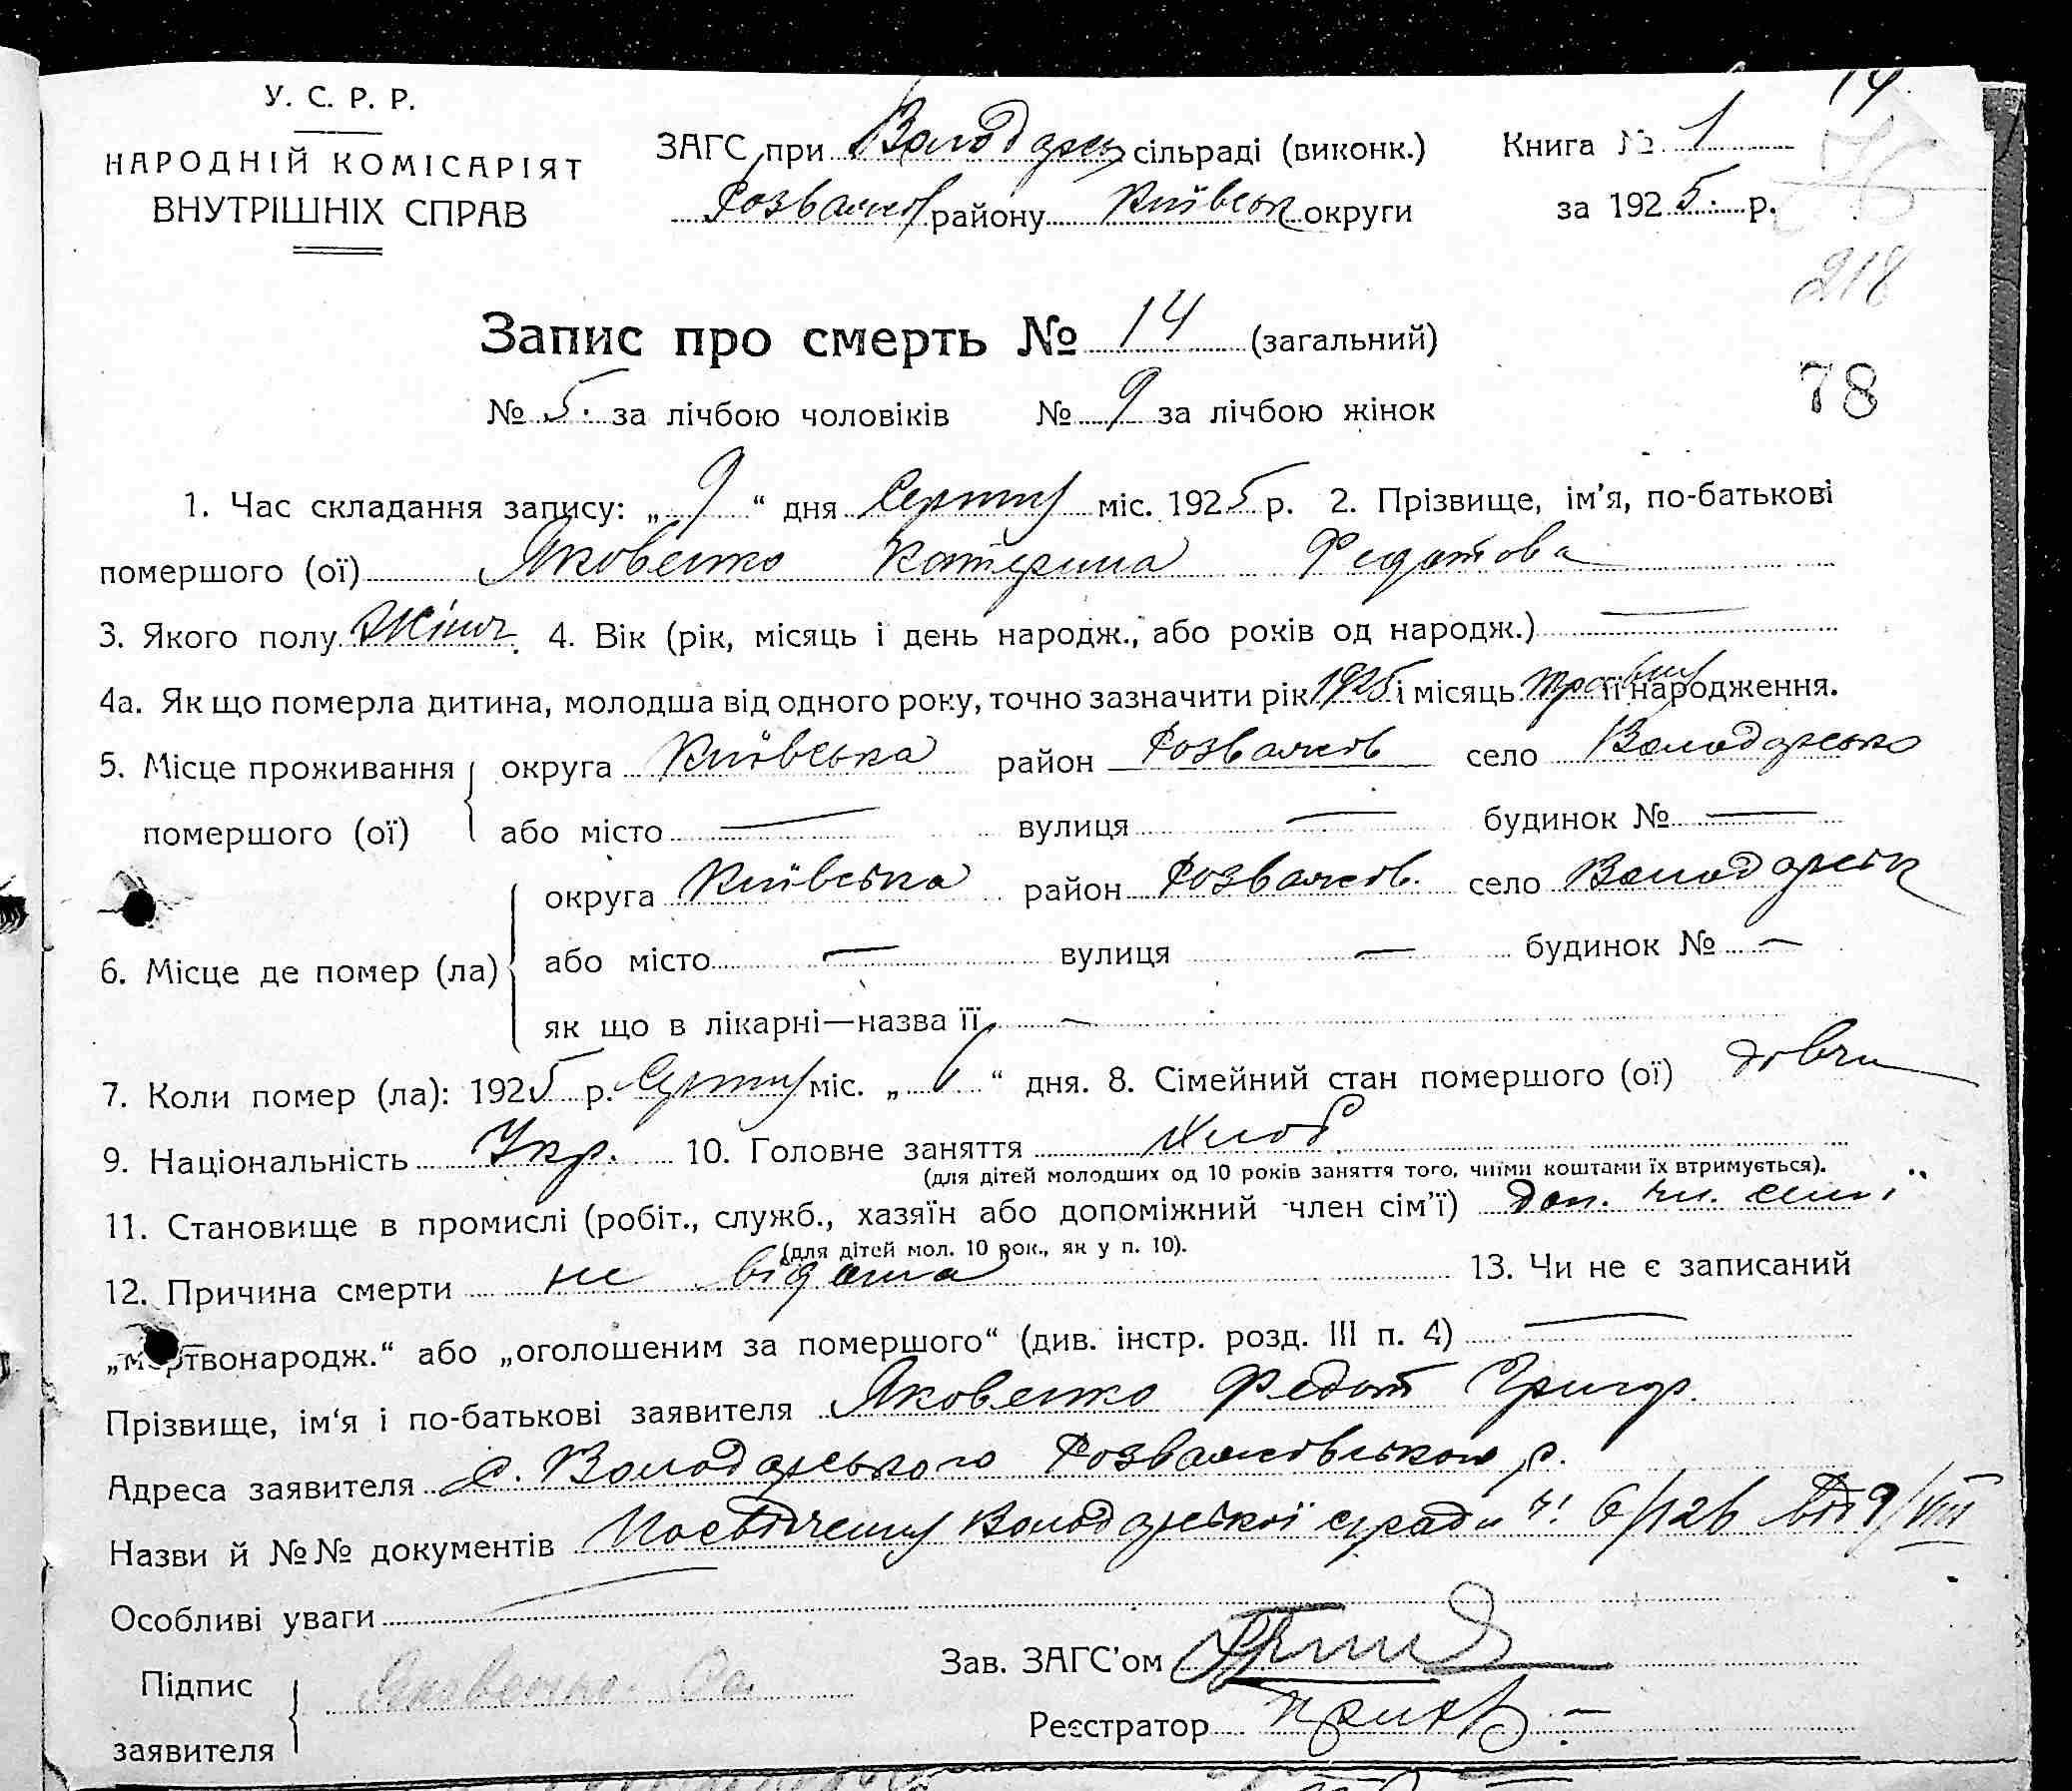 14
У. С. Р. Р.
НАРОДНІЙ КОМІСАРІЯТ
ВНУТРІШНІХ СПРАВ
ЗАГС при Володарск сільраді (виконк.) Книга № 1
Розважев району Київськ округи за 1925. р.
76
218
Запис про смерть № 14 (загальний)
№ 5. за лічбою чоловіків № 9 за лічбою жінок
78
1. Час складання запису: „ 9 “ дня Серпня міс. 1925 р. 2. Прізвище, ім’я, по-батькові
помершого (ої) Яковенко Катерина Федотова
3. Якого полу Жіноч. 4. Вік (рік, місяць і день народж., або років од народж.) —
4а. Як що померла дитина, молодша від одного року, точно зазначити рік 1925 і місяць травня її народження.
5. Місце проживання округа Київська район Розважев село Володарсько
помершого (ої) або місто — вулиця — будинок № —
округа Київська район Розважев. село Володарськ
6. Місце де помер (ла) або місто — вулиця — будинок № —
як що в лікарні—назва її —
7. Коли помер (ла): 1925 р. Серпня міс. „ “ дня. 8. Сімейний стан помершого (ої) дівчи
9. Національність Укр. 10. Головне заняття Хліб.
(для дітей молодших од 10 років заняття того, чиїми коштами їх втримується).
11. Становище в промислі (робіт., служб., хазяїн або допоміжний член сім’ї) Доп. чл. сім'ї
(для дітей мол. 10 рок., як у п. 10).
12. Причина смерти не відома 13. Чи не є записаний
„мертвонародж.“ або „оголошеним за помершого“ (див. інстр. розд. III п. 4) —
Прізвище, ім‘я і по-батькові заявителя Яковенко Федот Григор.
Адреса заявителя с. Володарського Розважевського р.
Назви й №№ документів Посвідчення Володарської сіради ч! 6/126 від 9/VIII
Особливі уваги —
Підпис заявителя Яковенко
Зав. ЗАГС’ом
Реєстратор